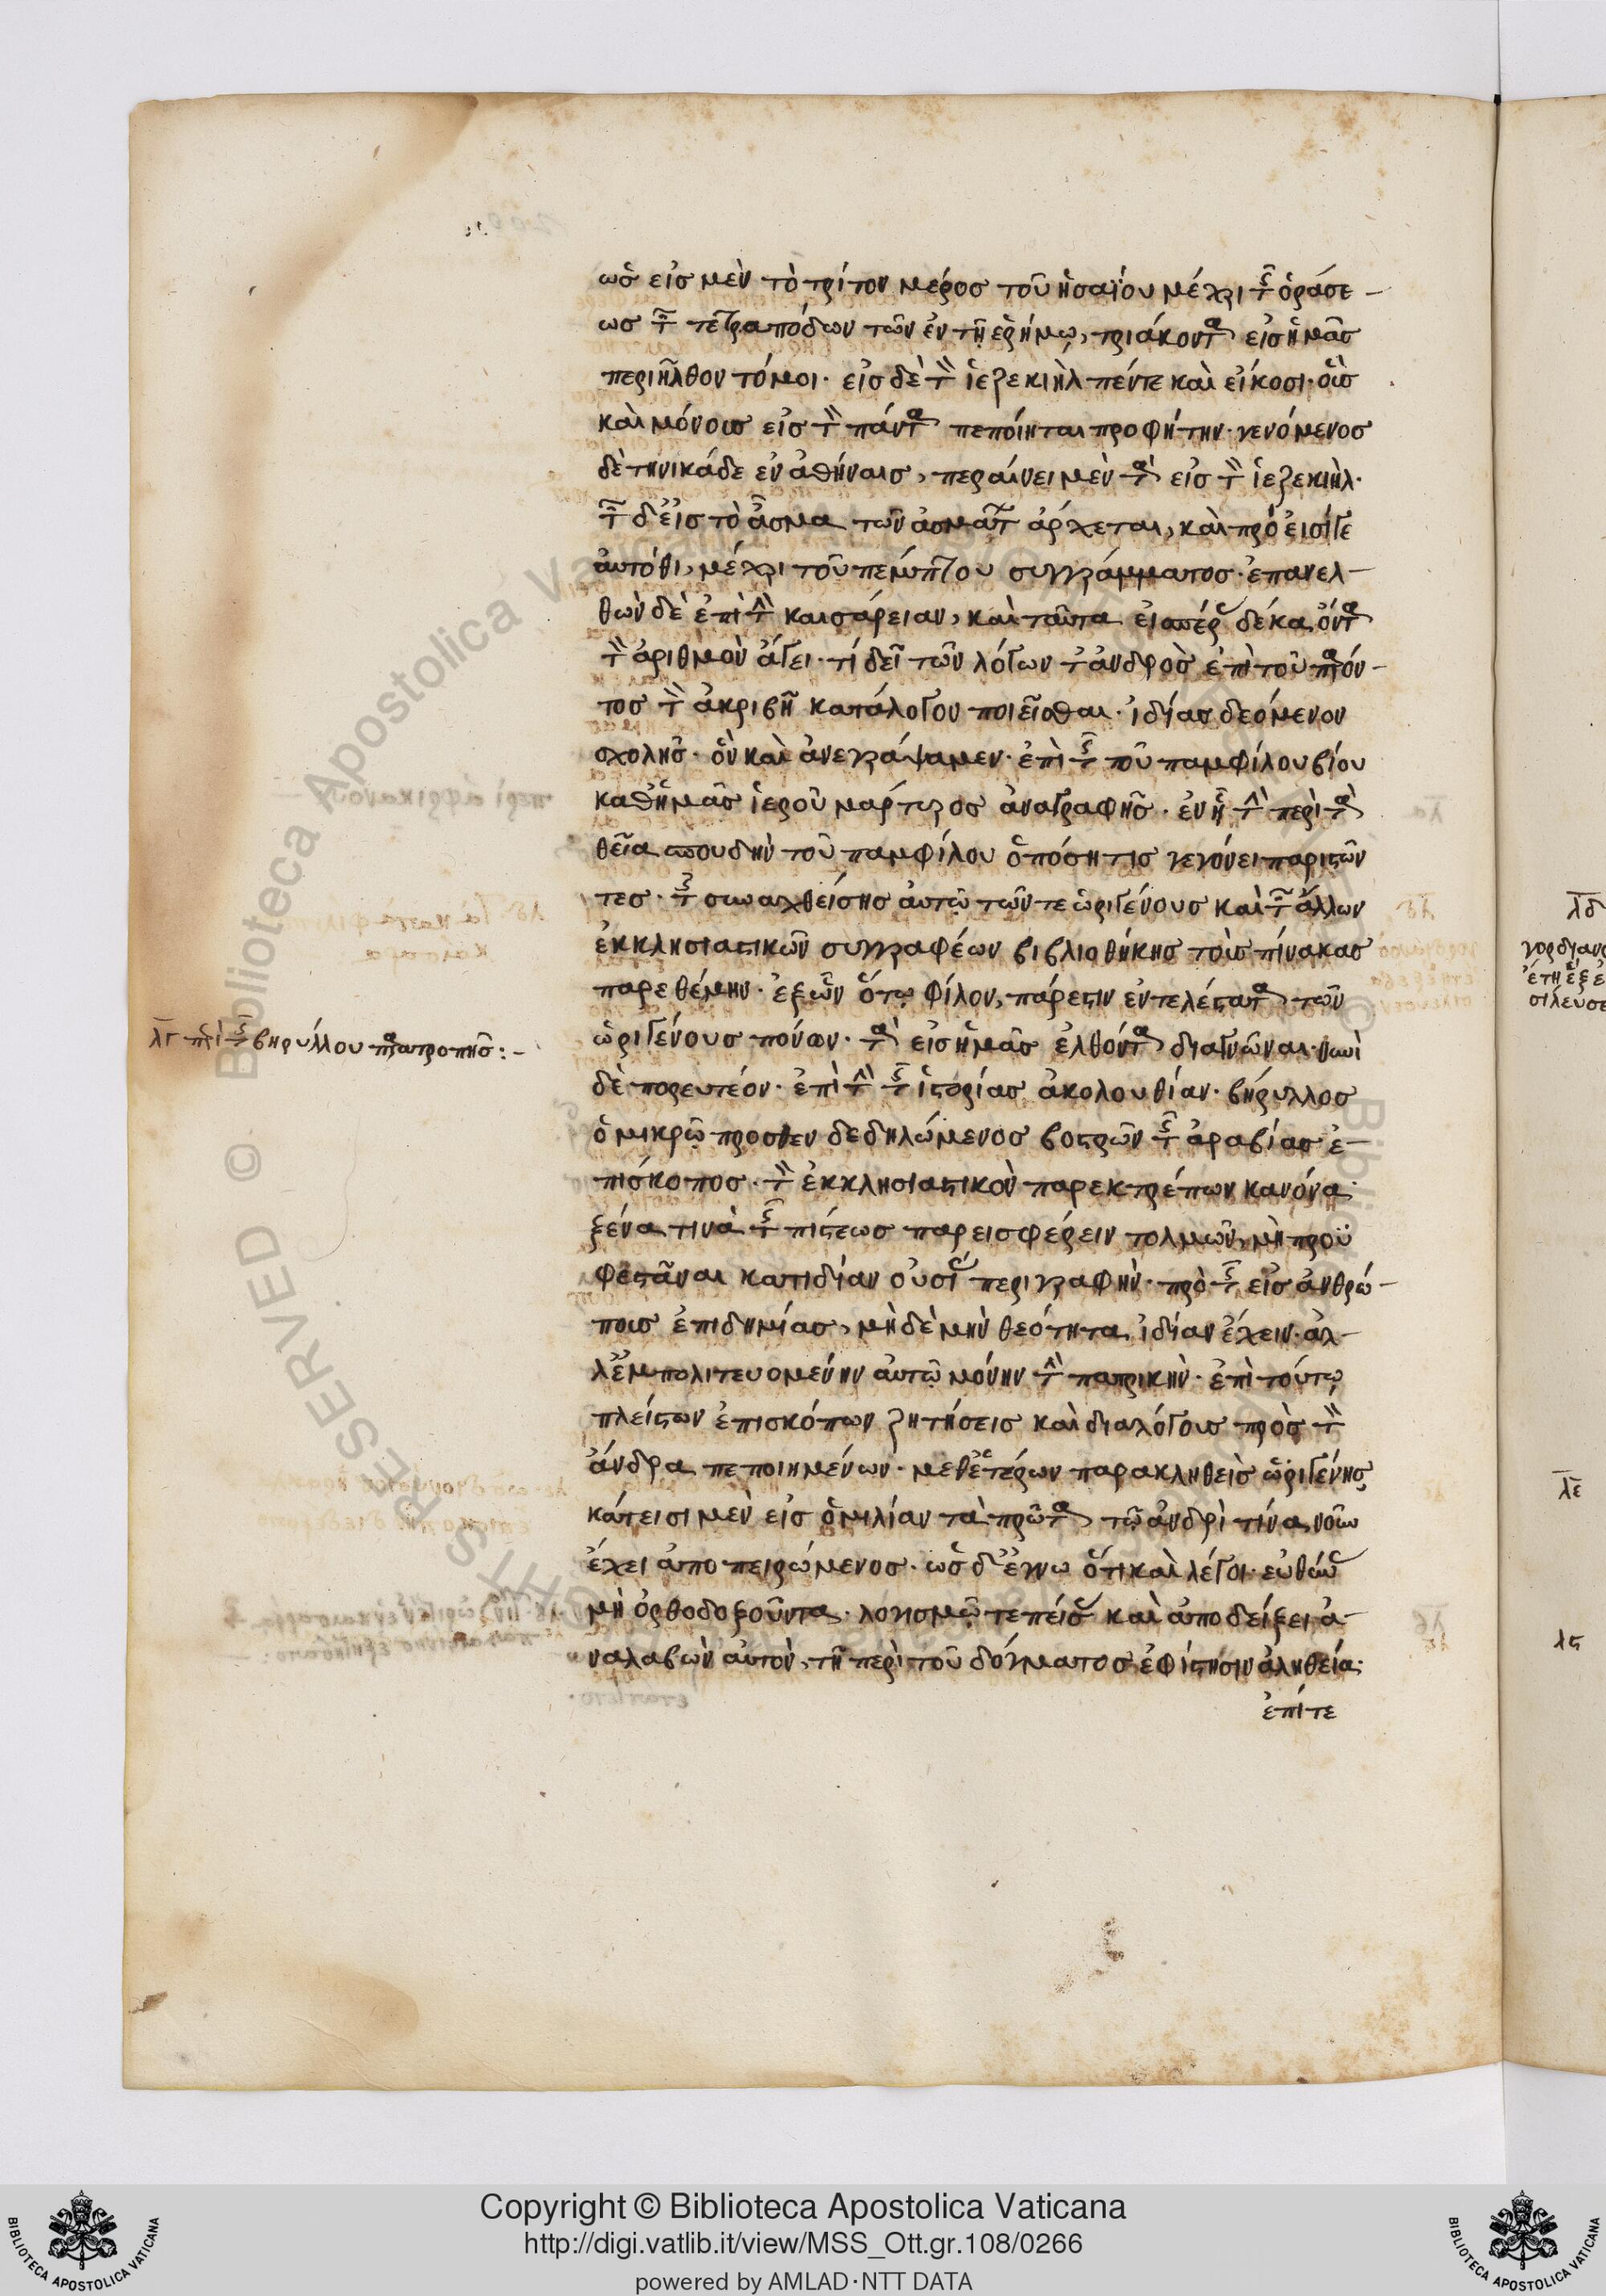 ὡς εἰς μὲν τὸ τρίτον μέρος τοῦ ἡσαΐου μέχρι τῆς ὁράσε-
ως τῶν τετραπόδων τῶν ἐν τῆ ἐρήμω, τριάκοντα εἰς ἡμᾶς
περιῆλθον τόμοι· εἰς δὲ τὸν ἰεζεκιὴλ πέντε καὶ εἴκοσι· οὓς
καὶ μόνους εἰς τὸν πάντα πεποίηται προφήτην· γενόμενος
δὲ τηνικάδε ἐν ἀθήναις, περαίνει μὲν τὰ εἰς τὸν ἰεζεκιὴλ·
τῶν δ' εἰς τὸ ἆσμα τῶν ἀσμάτων ἄρχεται, καὶ πρόεισί γε
αὐτόθι, μέχρι τοῦ πέμπτου συγγράμματος· ἐπανελ-
θὼν δὲ ἐπὶ τὴν καισάρειαν, καὶ ταῦτα εἰς πέρας δέκα ὄντα
τὸν ἀριθμὸν ἄγει· τί δεῖ τῶν λόγων τἀνδρὸς ἐπὶ τοῦ παρόν-
τος τὸν ἀκριβῆ κατάλογον ποιεῖσθαι· ἰδίας δεόμενον
σχολῆς· ὃν καὶ ἀνεγράψαμεν· ἐπὶ τῆς τοῦ παμφίλου βίου
καθ' ἡμᾶς ἱεροῦ μάρτυρος ἀναγραφῆς· ἐν ἧ τὴν περὶ τὰ
θεῖα σπουδὴν τοῦ παμφίλου ὁπόση τις γεγόνει παριστῶν
τες· τῆς συναχθείσης αὐτῶ τῶν τε ὠριγένους καὶ τῶν ἄλλων
ἐκκλησιαστικῶν συγγραφέων βιβλιοθήκης τοὺς πίνακας
παρεθέμην· ἐξ ὧν ὅτω φίλον, πάρεστιν ἐντελέστατα τῶν
ὠριγένους πόνων· τὰ εἰς ἡμᾶς ἐλθόντα διαγνῶναι· νυνὶ
λγ περὶ τῆς βηρύλλου παρατροπῆς :-
δὲ πορευτέον· ἐπὶ τὴν τῆς ἱστορίας ἀκολουθίαν· βήρυλλος
ὁ μικρῶ πρόσθεν δεδηλώμενος βοστρῶν τῆς ἀραβίας ἐ-
πίσκοπος· τὸν ἐκκλησιαστικὸν παρεκτρέπων κανόνα·
ξένα τινὰ τῆς πίστεως παρεισφέρειν τολμῶν, μὴ προϋ
φεστᾶναι κατιδίαν οὐσίας περιγραφὴν· πρὸ τῆς εἰς ἀνθρώ-
πους ἐπιδημίας, μὴ δὲ μὴν θεότητα ἰδίαν ἔχειν· ἀλ-
λ' ἐμπολιτευομένην αὐτῶ μόνην τὴν πατρικὴν· ἐπὶ τούτω
πλείστων ἐπισκόπων ζητήσεις καὶ διαλόγους πρὸς τὸν
ἄνδρα πεποιημένων· μεθ' ἑτέρων παρακληθεὶς ὠριγένης
κάτεισι μὲν εἰς ὁμιλίαν τὰ πρῶτα τῶ ἀνδρὶ τίνα νοῦν
ἔχει ἀποπειρώμενος· ὡς δ' ἔγνω ὅτι καὶ λέγοι· εὐθύνας
μὴ ὀρθοδοξοῦντα· λογισμῶ τε πείσας καὶ ἀποδείξει ἀ-
ναλαβὼν αὐτὸν, τῆ περὶ τοῦ δόγματος ἐφίστησιν ἀληθεία·
ἐπί τε
λδ
λε
λς
Copyright © Biblioteca Apostolica Vaticana
http://digi.vatlib.it/view/MSS_Ott.gr.108/0266
powered by AMLAD·NTT DATA